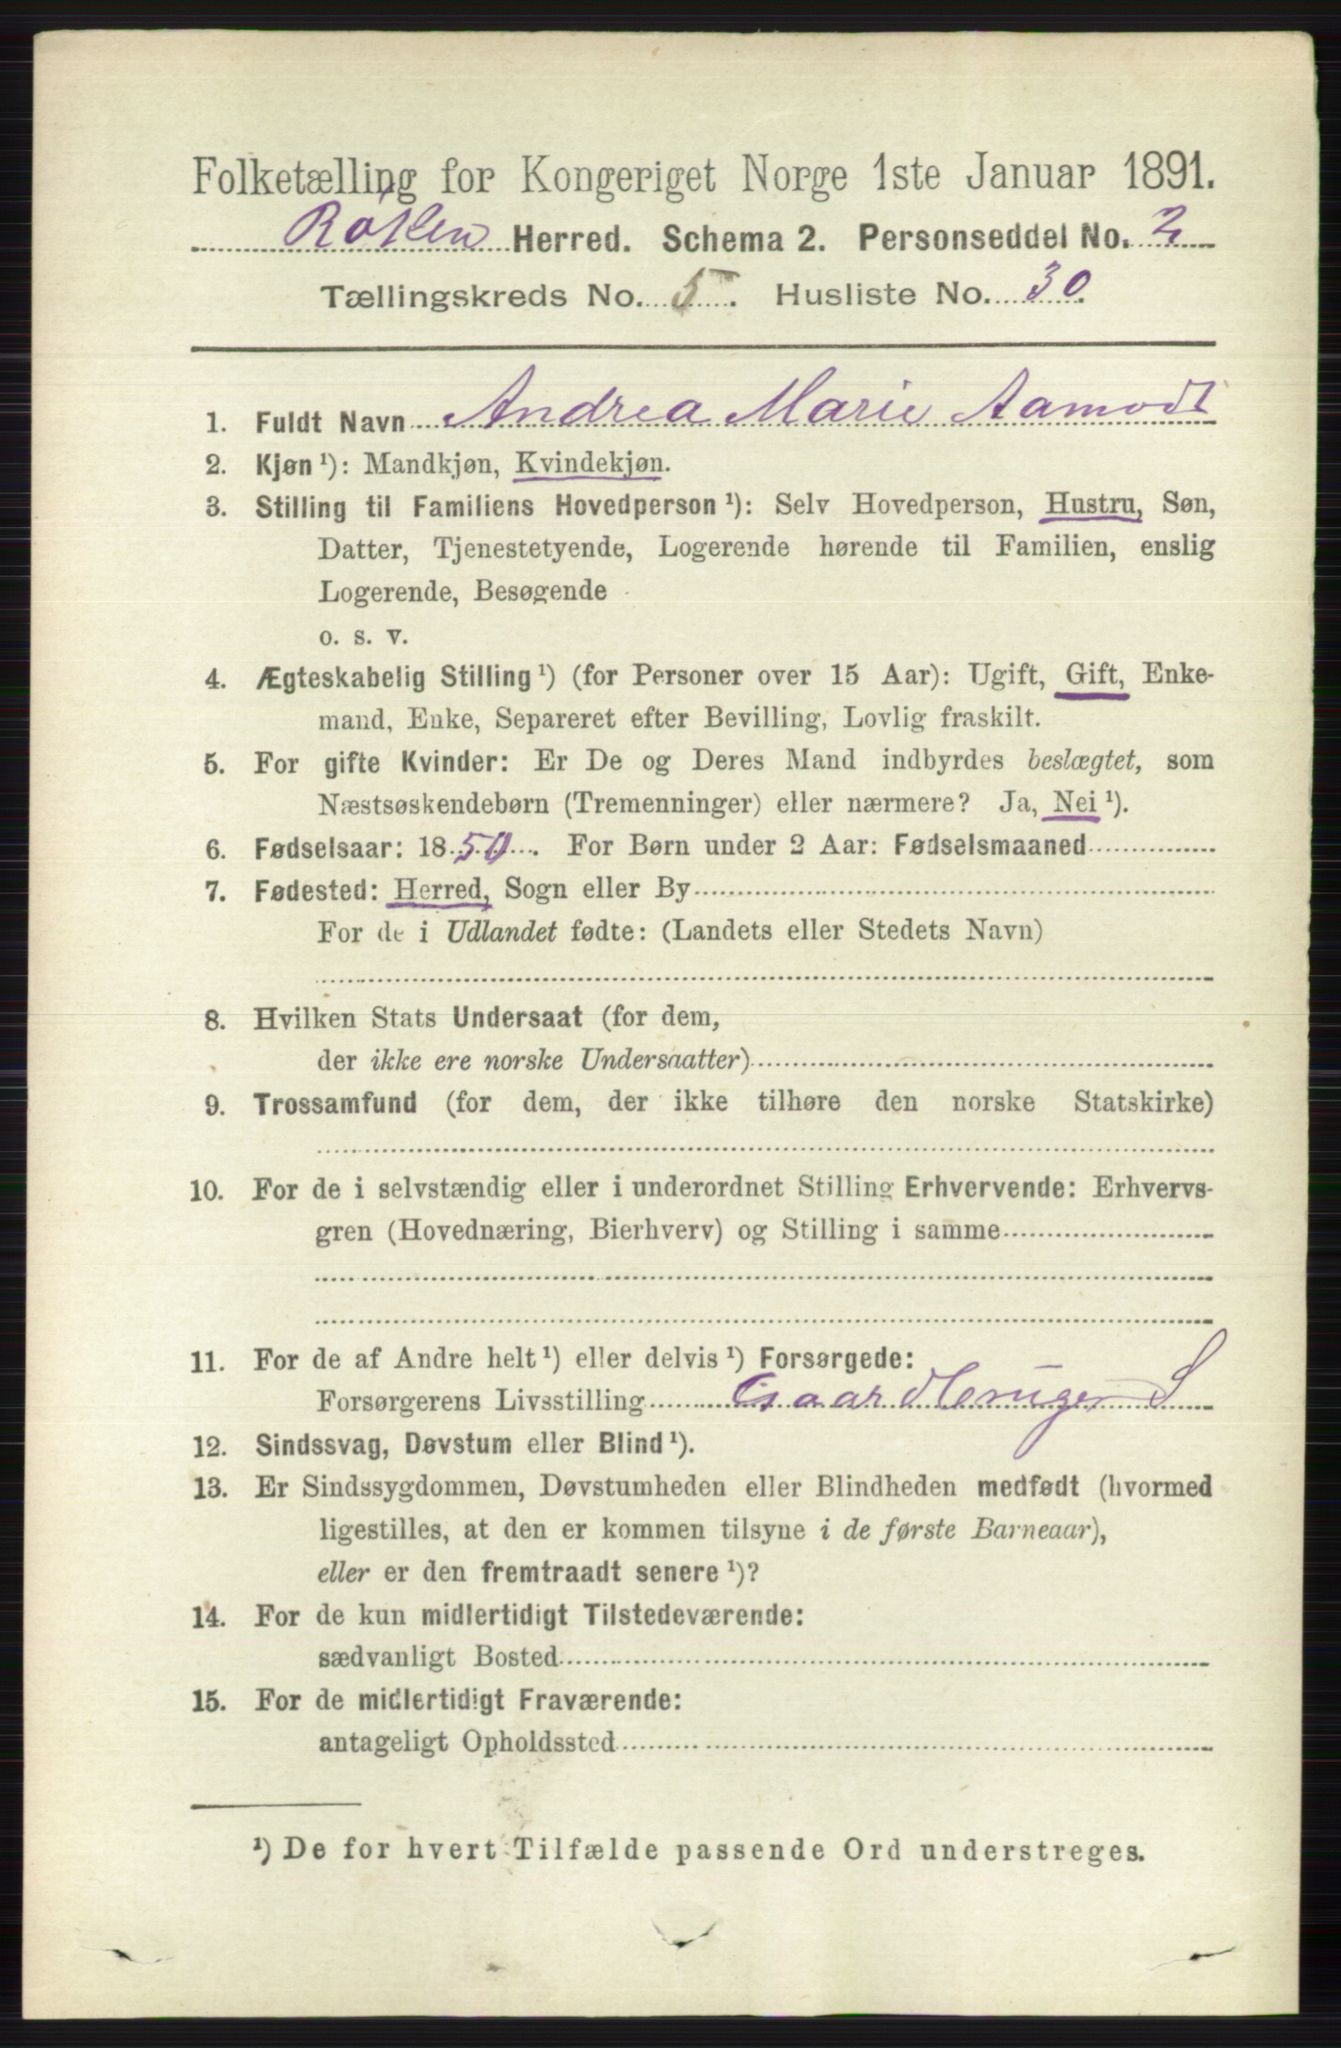 Folketælling for Kongeriget Norge 1ste Januar 1891.
Røken Herred. Schema 2. Personseddel No. 2
Tællingskreds No. 5. Husliste No. 30.
1. Fuldt Navn Andrea Marie Aamodt
2. Kjøn ¹): Mandkjøn, Kvindekjøn.
3. Stilling til Familiens Hovedperson ¹): Selv Hovedperson, Hustru, Søn,
Datter, Tjenestetyende, Logerende hørende til Familien, enslig
Logerende, Besøgende
o. s. v.
4. Ægteskabelig Stilling ¹) (for Personer over 15 Aar): Ugift, Gift, Enke-
mand, Enke, Separeret efter Bevilling, Lovlig fraskilt.
5. For gifte Kvinder: Er De og Deres Mand indbyrdes beslægtet, som
Næstsøskendebørn (Tremenninger) eller nærmere? Ja, Nei ¹).
6. Fødselsaar: 1850. For Børn under 2 Aar: Fødselsmaaned
7. Fødested: Herred, Sogn eller By
For de i Udlandet fødte: (Landets eller Stedets Navn)
8. Hvilken Stats Undersaat (for dem,
der ikke ere norske Undersaatter)
9. Trossamfund (for dem, der ikke tilhøre den norske Statskirke)
10. For de i selvstændig eller i underordnet Stilling Erhvervende: Erhvervs-
gren (Hovednæring, Bierhverv) og Stilling i samme
11. For de af Andre helt ¹) eller delvis ¹) Forsørgede:
Forsørgerens Livsstilling Gaardbruger S
12. Sindssvag, Døvstum eller Blind ¹).
13. Er Sindssygdommen, Døvstumheden eller Blindheden medfødt (hvormed
ligestilles, at den er kommen tilsyne i de første Barneaar),
eller er den fremtraadt senere ¹)?
14. For de kun midlertidigt Tilstedeværende:
sædvanligt Bosted
15. For de midlertidigt Fraværende:
antageligt Opholdssted
¹) De for hvert Tilfælde passende Ord understreges.